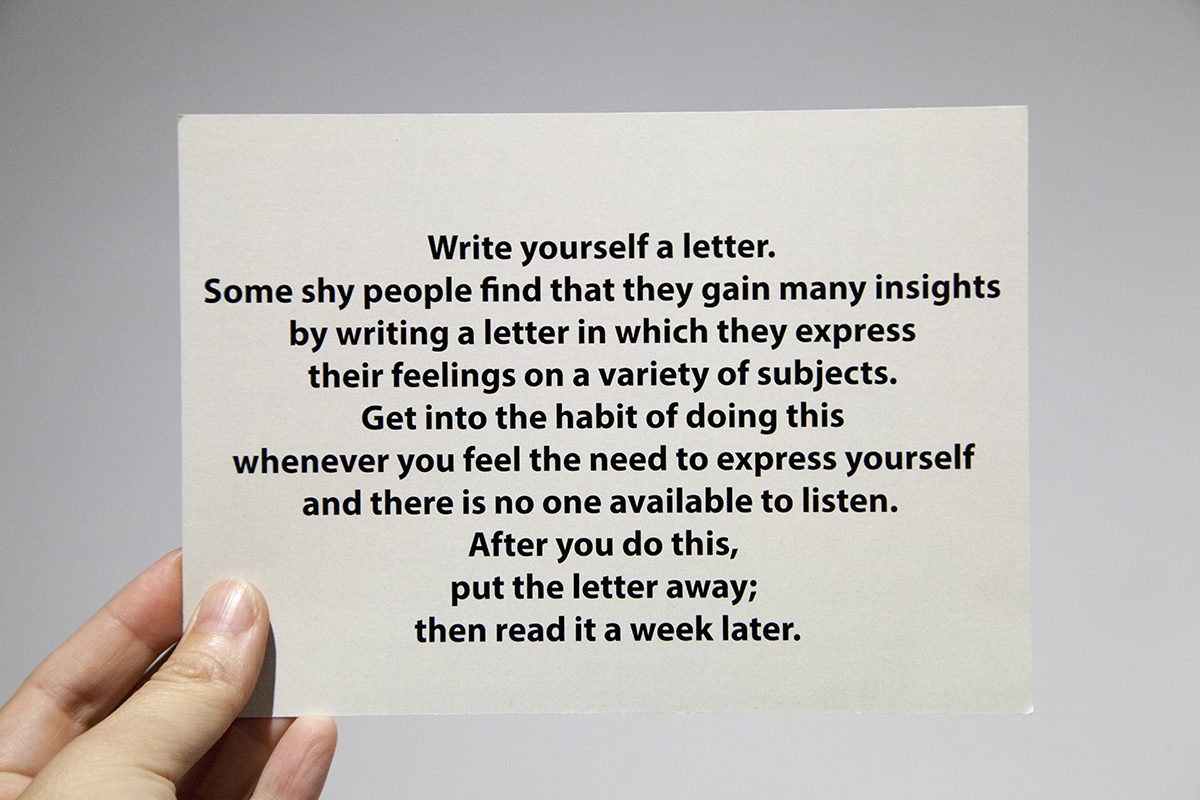 Write yourself a letter.
Some shy people find that they gain many insights
by writing a letter in which they express
their feelings on a variety of subjects.
Get into the habit of doing this
whenever you feel the need to express yourself
and there is no one available to listen.
After you do this,
put the letter away;
then read it a week later.